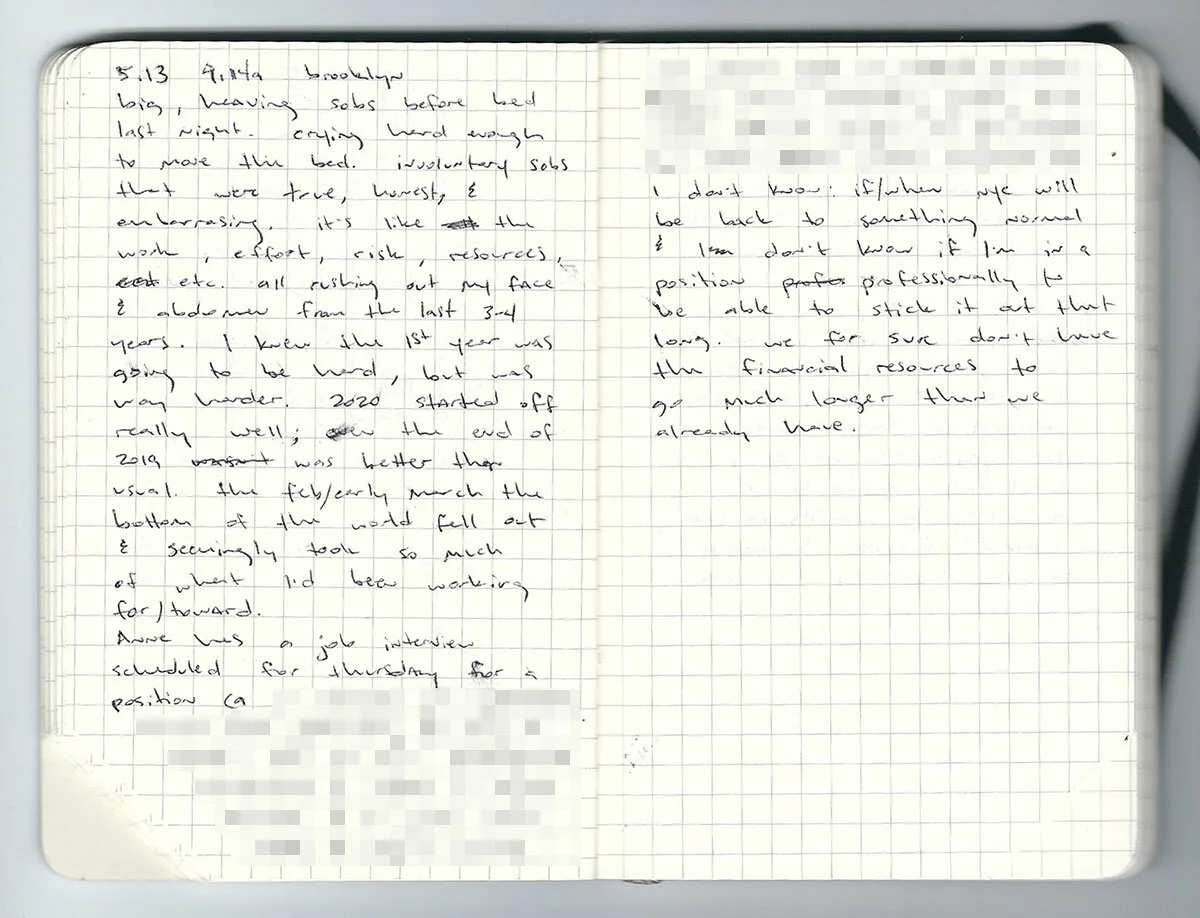 5.13 9.14a brooklyn
big, heaving sobs before bed
last night. crying hard enough
to move the bed. involuntary sobs
that were true, honest, &
embarrasing. it's like the
work, effort, risk, resources,
etc. all rushing out my face
& abdomen from the last 3-4
years. I knew the 1st year was
going to be hard, but was
way harder. 2020 started off
really well; even the end of
2019 wasn't was better than
usual. the feb/early march the
bottom of the world fell out
& seemingly took so much
of what I'd been working
for/toward.
Anne has a job interview
scheduled for thursday for a
position (a
I don't know: if/when nyc will
be back to something normal
& I don't know if I'm in a
position profes professionally to
be able to stick it out that
long. we for sure don't have
the financial resources to
go much longer than we
already have.